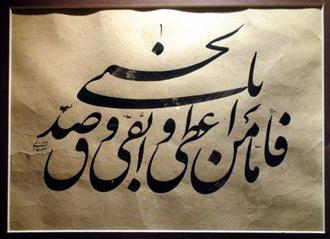 فأمّا من اعطی و اتّقی و صدّق
بالحسنی